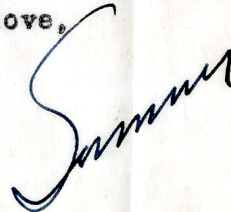 ove,
Sammy